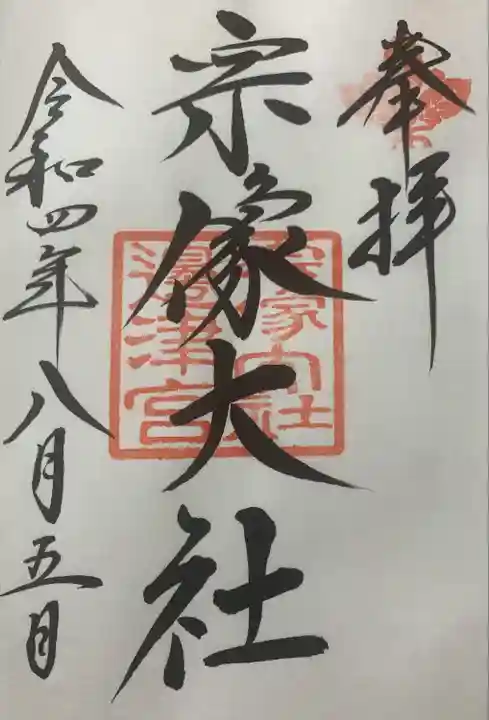 奉拝
宗像大社
宗像大社
邊津宮
令和四年八月五日